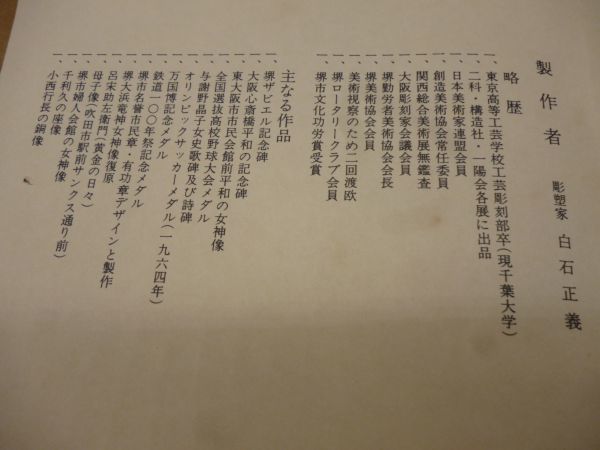 製作者 彫塑家 白石正義
略歴
一、東京高等工芸学校工芸彫刻部卒(現千葉大学)
一、二科・構造社・一陽会各展に出品
一、日本美術家連盟会員
一、創造美術協会常任委員
一、関西総合美術展無鑑査
一、大阪彫刻家会議会員
一、堺勤労者美術協会会長
一、堺美術協会会員
一、美術視察のため二回渡欧
一、堺ロータリークラブ会員
一、堺市文化功労賞受賞
主なる作品
一、堺ザビエル記念碑
一、大阪心斎橋平和の記念碑
一、東大阪市市民会館前平和の女神像
一、全国選抜高校野球大会メダル
一、与謝野晶子女史歌碑及び詩碑
一、オリンピックサッカーメダル(一九六四年)
一、万国博記念メダル
一、鉄道一〇〇年祭記念メダル
一、堺市名誉市民章・有功章デザインと製作
一、堺大浜竜神女神像復原
一、呂宋助左衛門(黄金の日々)
一、母子像(吹田市駅前サンクス通り前)
一、堺市婦人会館の女神像
一、千利久の座像
一、小西行長の銅像